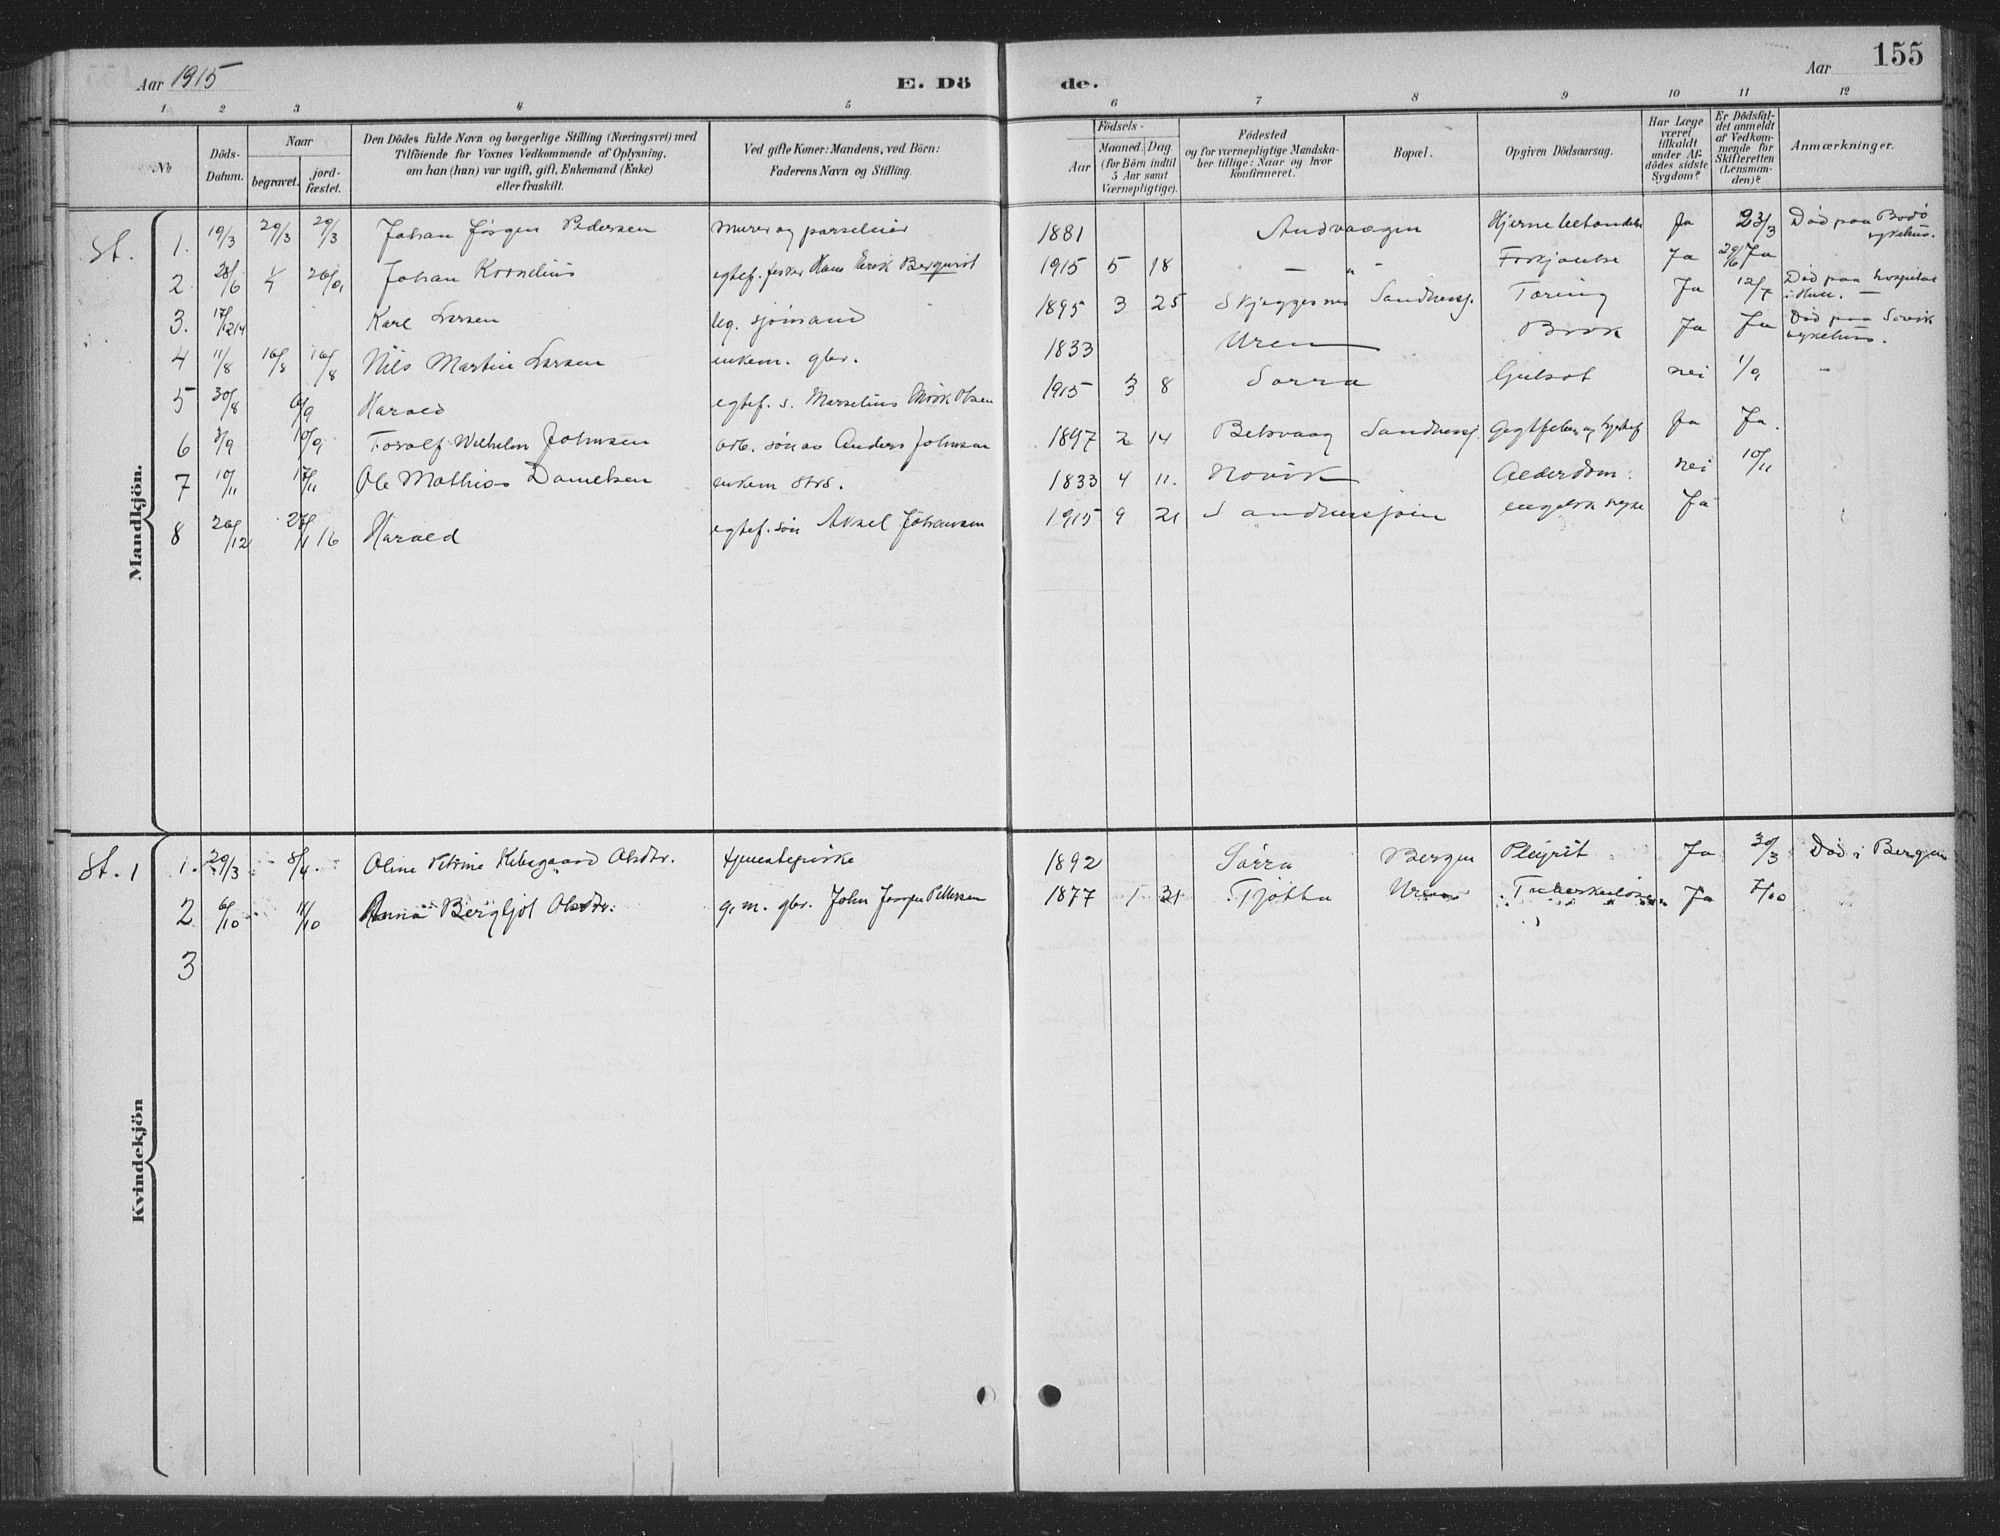 155
Aar 1915 E. Dö de. Aar
1 2 3 4 5 6 7 8 9 10 11 12
No
Döds-Datum.
Naar
begravet.
jord-fæstet.
Den Dödes fulde Navn og borgerlige Stilling (Næringsvei) med
Tilföiende for Voxnes Vedkommende af Oplysning,
om han (hun) var ugift, gift, Enkemand (Enke)
eller fraskilt.
Ved gifte Koner: Mandens, ved Börn:
Faderens Navn og Stilling.
Födsels-
Aar
Maaned. Dag.
(for Börn indtil
5 Aar samt
Værnepligtige).
Födested
og for værnepligtige Mandska-
ber tillige: Naar og hvor
konfirmeret.
Bopæl.
Opgiven Dödsaarsag.
Har Læge
været
tilkaldt
under Af-
dödes sidste
Sygdom?
Er Dödsfal-
det anmeldt
af Vedkom-
mende for
Skifteretten
(Lensman-
den)?
Anmærkninger.
Mandkjön.
St. 1. 19/3 29/3 29/3 Johan Jørgen Pedersen murer og parseleier 1881 Andvaagen Hjernebetændelse Ja 23/3 Død paa Bodö sykehus.
2 28/6 Johan Kornelius egtef. fisker Hans Erik Bergquist 1915 5 18 — „ Ja 29/6 Ja
3. 17/12 14 Karl Larsen ug. sjömand 1895 3 25 Skjeggesnes Sandnessj. Tæring Ja 12/7 Död paa hospital i Hull.
4 11/8 16/8 16/8 Nils Martin Larsen enkem. gbr. 1833 Uren Brok Ja Ja Död paa Sövik sykehus.
5 30/8 6/9 Harald egtef. s. Marselius Mörk Olsen 1915 3 8 Sörra Gulsot nei 1/9
6 3/9 10/9 Toralf Wilhelm Johnsen arb. søn av Anders Johnsen 1897 2 14 Betsvaag Sandnessj. Ja Ja.
7 10/11 17/11 Ole Mathias Danielsen enkem. 1833 4 11. Novik Alderdom. nei 10/11
8 26/12 1 16 Harald egtef. søn Aksel Johansen 1915 9 21 Sandnessjøen engelsk syke Ja
Kvindekjön
St. 1 1. 29/3 8/4. Oline Petrine Kibsgaard Olsdtr. tjenestepike 1892 Sörra Bergen Pleurit Ja 30/3 Död i Bergen
2 6/10 11/10 Anna Bergljot Olsdtr. g. m. gbr. John Jørgen Pettersen 1877 1 31 Tjötta Uren Tuberkulose Ja 7/10
3